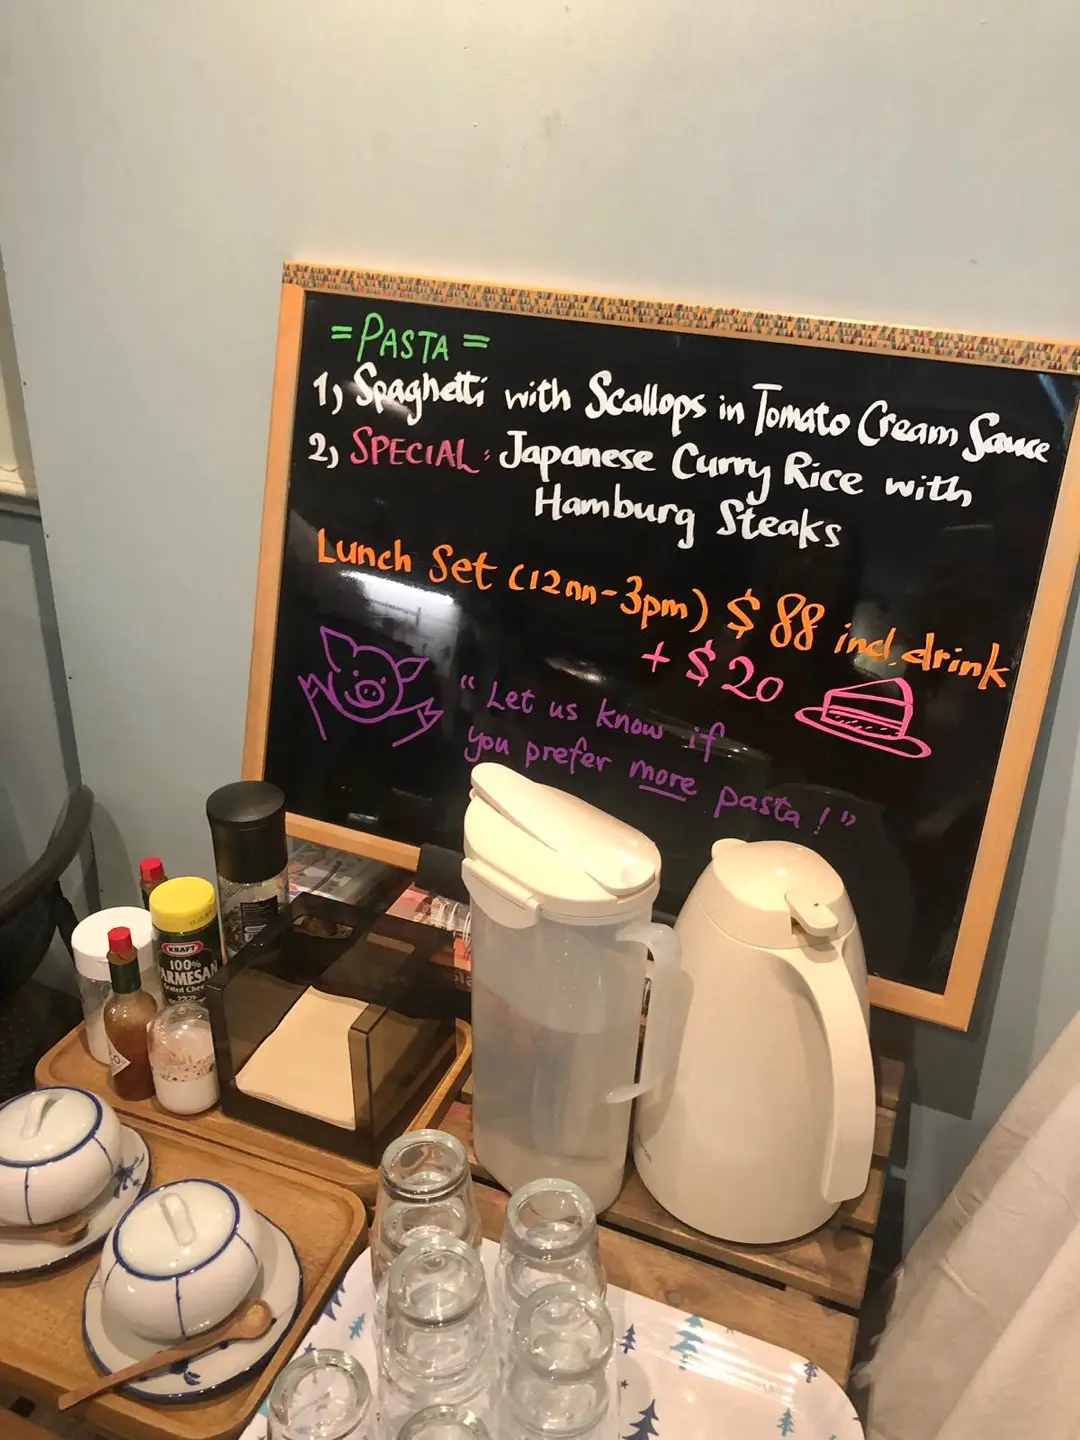 =PASTA=
1) Spaghetti with Scallops in Tomato Cream Sauce
2) SPECIAL: Japanese Curry Rice with
Hamburg Steaks
Lunch Set (12nn-3pm) $88 incl. drink
+ $20
"Let us know if
you prefer more pasta!"
KRAFT
100%
PARMESAN